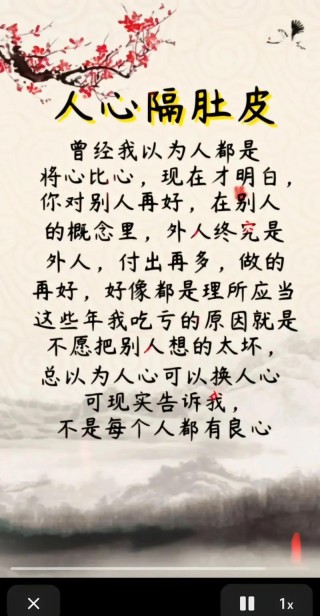 人心隔肚皮
曾经我以为人都是
将心比心，现在才明白，
你对别人再好，在别人
的概念里，外人终究是
外人，付出再多，做的
再好，好像都是理所应当
这些年我吃亏的原因就是
不愿把别人想的太坏，
总以为人心可以换人心
可现实告诉我，
不是每个人都有良心
1x